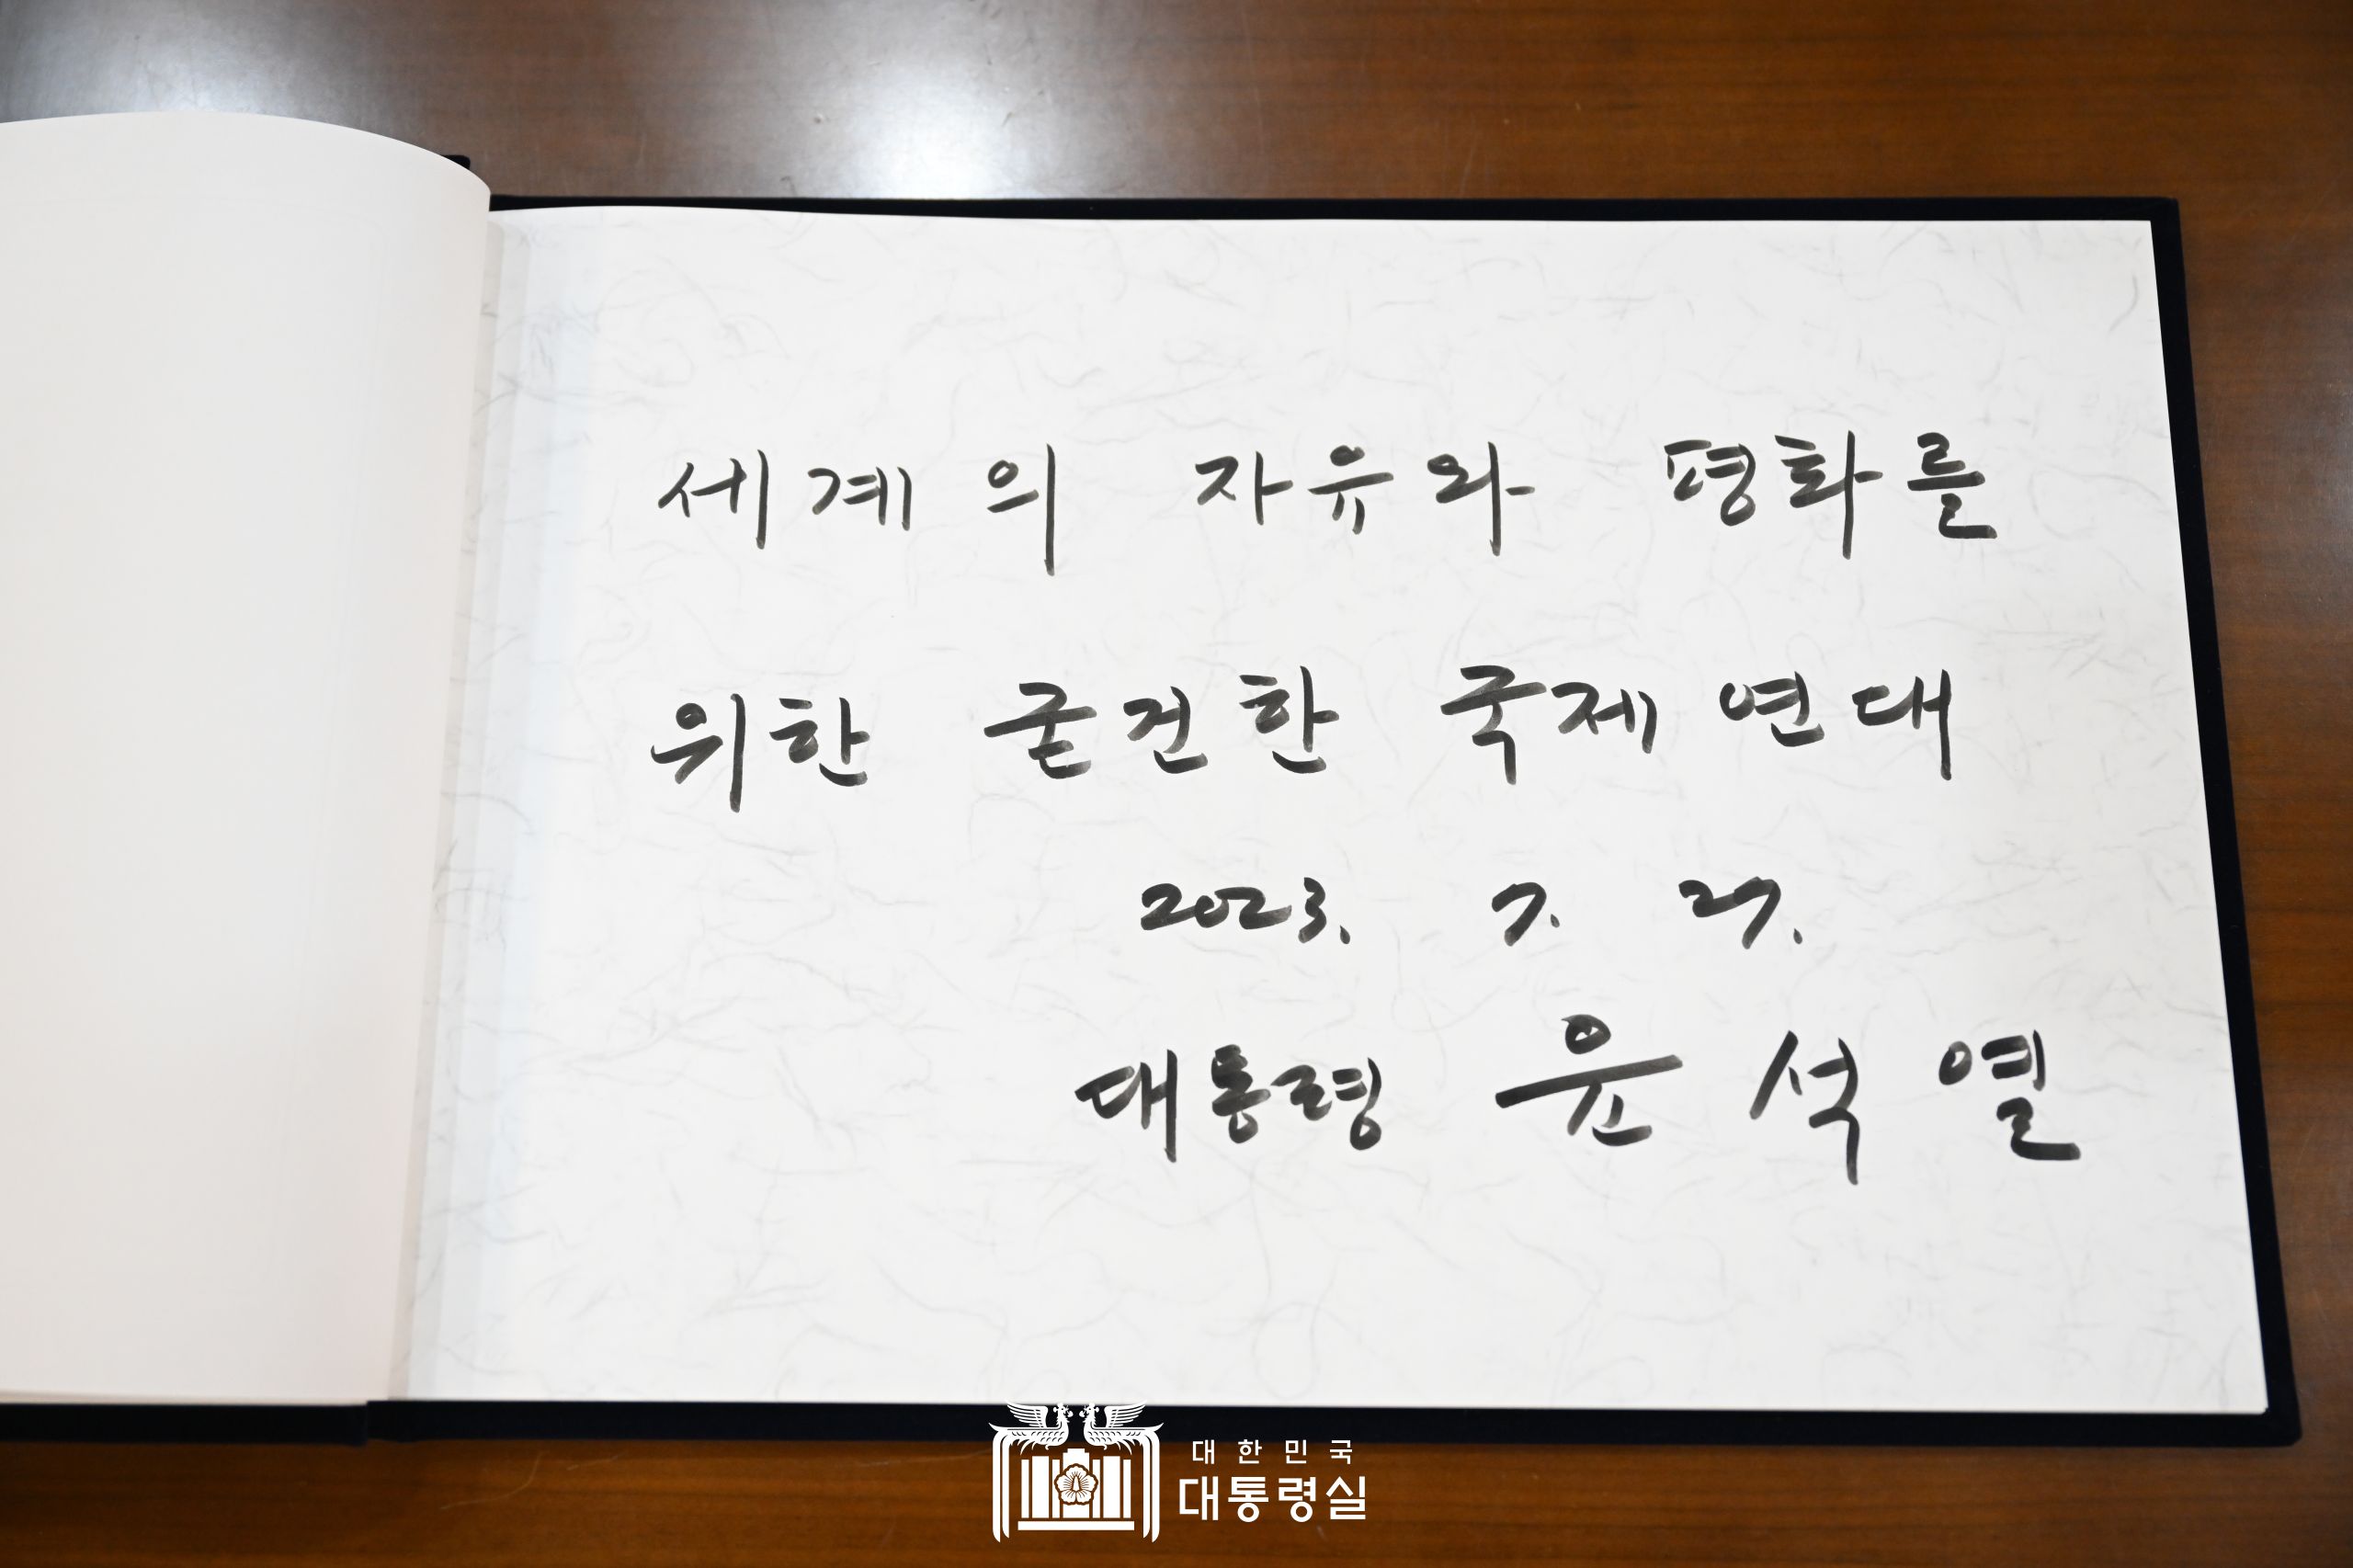 세계의 자유와 평화를
위한 굳건한 국제연대
2023. 7. 27.
대통령 윤석열
대한민국
대통령실